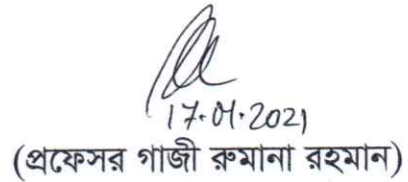 17.01.2021
(প্রফেসর গাজী রুমানা রহমান)